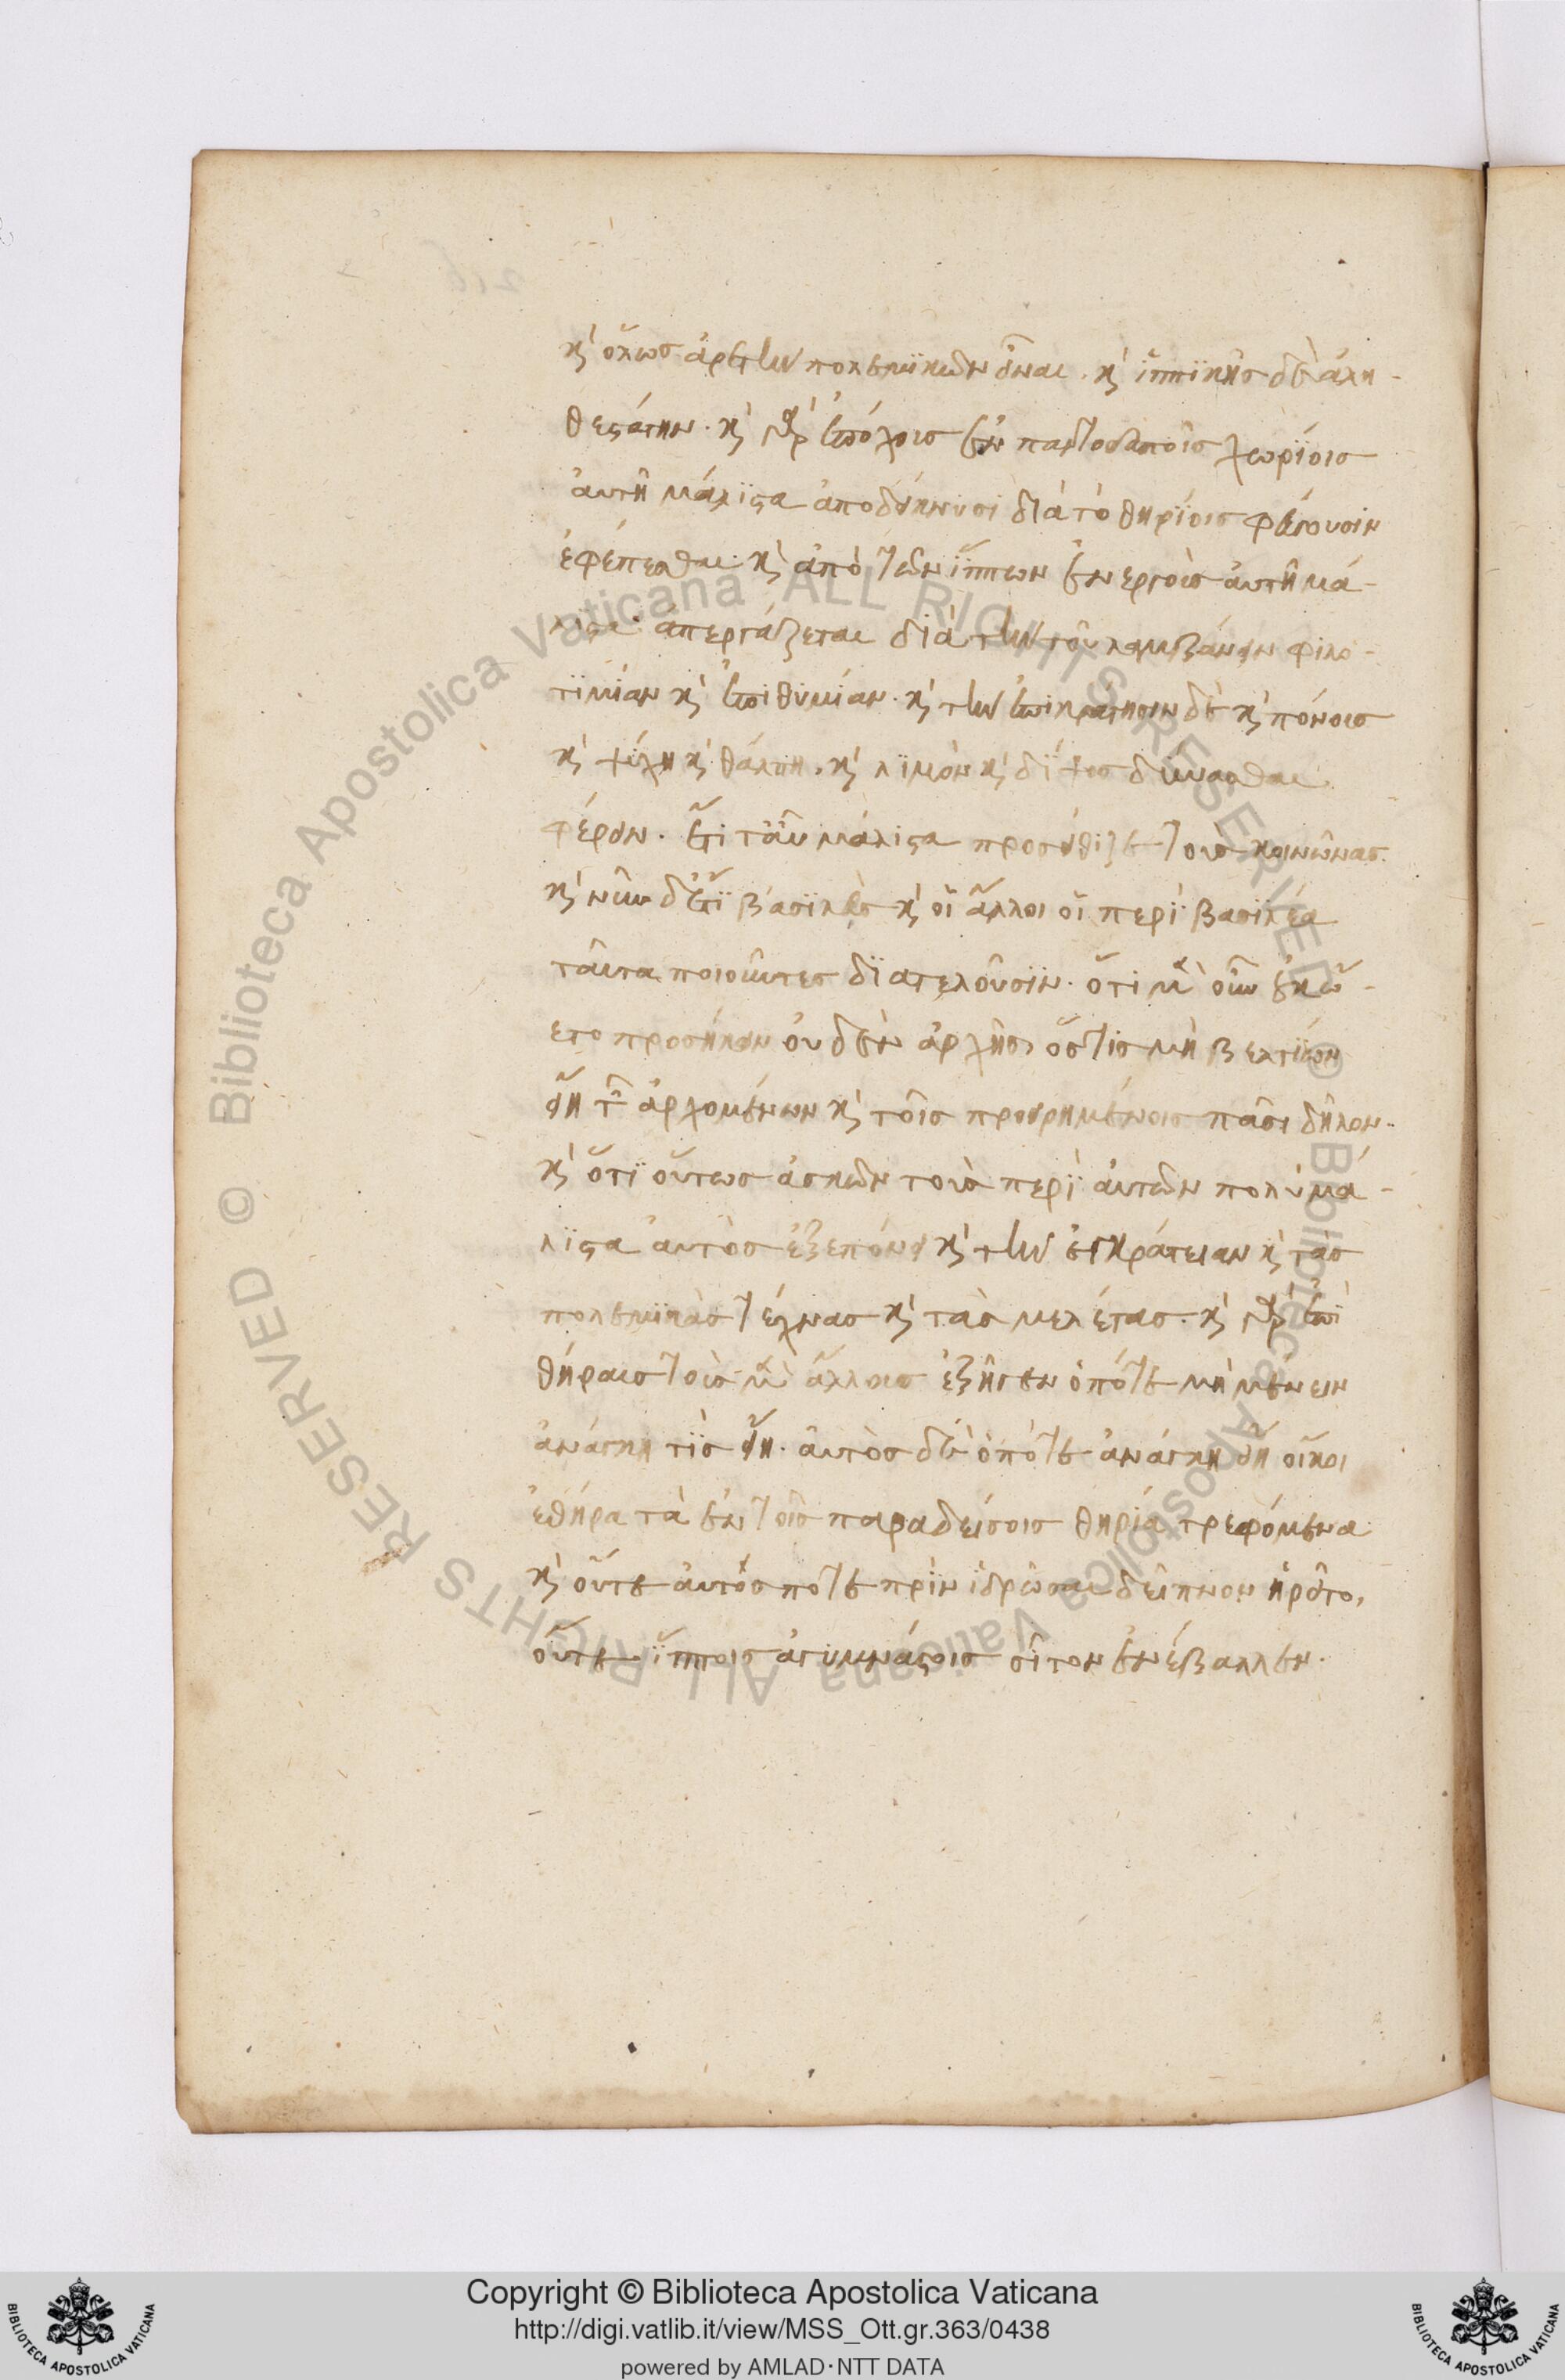 κ̀ ὅλως ἀρετὴν πολεμϊκῶν εἶναι. κ̀ ἱππϊκῆς δὲ ἀλη-
θεϛάτην. κ̀ γὰρ ἐπόχοις ἐν παντοδαποῖς χωρίοις
αὐτῆ μάλϊϛα ἀποδείκνυσι διὰ τὸ θηρίοις φεύγουσιν
ἐφέπεσθαι. κ̀ ἀπὸ τῶν ἵππων ἐνεργοὺς αὐτῆ μά-
λϊϛα ἀπεργάζεται διὰ τὴν τοῦ λαμβάνειν φιλο-
τϊμίαν κ̀ ἐπιθυμίαν. κ̀ τὴν ἐπικράτησιν δὲ κ̀ πόνοις
κ̀ ψύχη κ̀ θάλπη. κ̀ λϊμὸν κ̀ δίψος δύνασθαι
φέρειν. ἔτι ταῦν μάλιϛα προσείθιζε τοὺς κοινῶνας.
κ̀ νῦν δ' ἔτϊ βασϊλεὺς κ̀ οἱ ἄλλοι οἱ περὶ βασιλέα
ταῦτα ποιοῦντες δϊατελοῦσϊν. ὅτι μὲν οὖν οὐκ ὤ-
ετο προσήκειν οὐδενὶ ἀρχῆς, ὅστις μὴ βελτίων
εἴη τῶν ἀρχομένων κ̀ τοῖς προειρημένοις πᾶσι δῆλον.
κ̀ ὅτϊ οὕτως ἀσκῶν τοὺς περὶ αὐτῶν πολὺ μά-
λϊϛα αὐτὸς ἐξεπόνει κ̀ τὴν ἐγκράτειαν κ̀ τὰς
πολεμϊκὰς τέχνας κ̀ τὰς μελέτας. κ̀ γὰρ ἐπὶ
θήραις τοὺς μὲν ἄλλους ἐξῆγεν ὁπότε μὴ μένειν
ἀνάγκη τϊς εἴη. αὐτὸς δὲ ὁπότε ἀνάγκη εἴη οἴκοι
ἐθήρα τὰ ἐν τοῖς παραδείσοις θηρία τρεφόμενα
κ̀ οὔτε αὐτός ποτε πρὶν ἱδρῶσαι δεῖπνον ἡρεῖτο,
οὔτε ἵπποις ἀγυμνάϛοις σῖτον ἐνέβαλλεν.
Copyright © Biblioteca Apostolica Vaticana
http://digi.vatlib.it/view/MSS_Ott.gr.363/0438
powered by AMLAD·NTT DATA
BIBLIOTECA APOSTOLICA VATICANA
BIBLIOTECA APOSTOLICA VATICANA
© Biblioteca Apostolica Vaticana ALL RIGHTS RESERVED
© Biblioteca Apostolica Vaticana ALL RIGHTS RESERVED